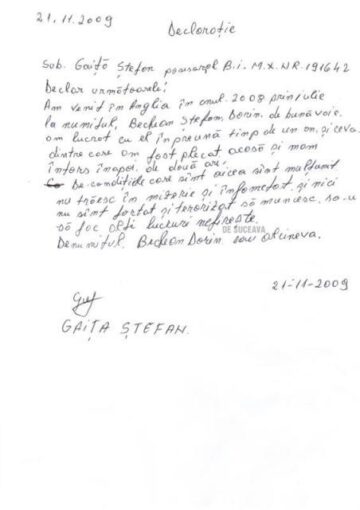 21.11.2009
Declarație
Sub. Gaiță Ștefan posesorul B.i. M.X. NR. 191642
Declar următoarele!
Am venit în Anglia în anul. 2008 prin iulie
la numitul, Beclean Ștefan. Dorin. de bună voie.
am lucrat cu el împreună timp de un an. și ceva.
dintre care am fost plecat acasă și mam
întors înapoi. de două ori.
De condițiile care sînt aicea sînt mulțumit
nu trăesc în mizerie și înfometat. și nici
nu sînt forțat și terorizat să muncesc. sa-u
să fac alte lucruri nefirește.
DE SUCEAVA
Denumitul. Beclean Dorin sau altcineva.
21-11-2009
GAIȚA ȘTEFAN.